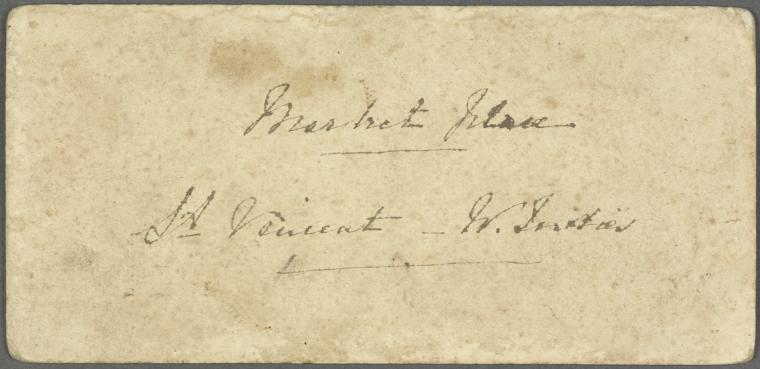 Market Place
St Vincent - W. Indies